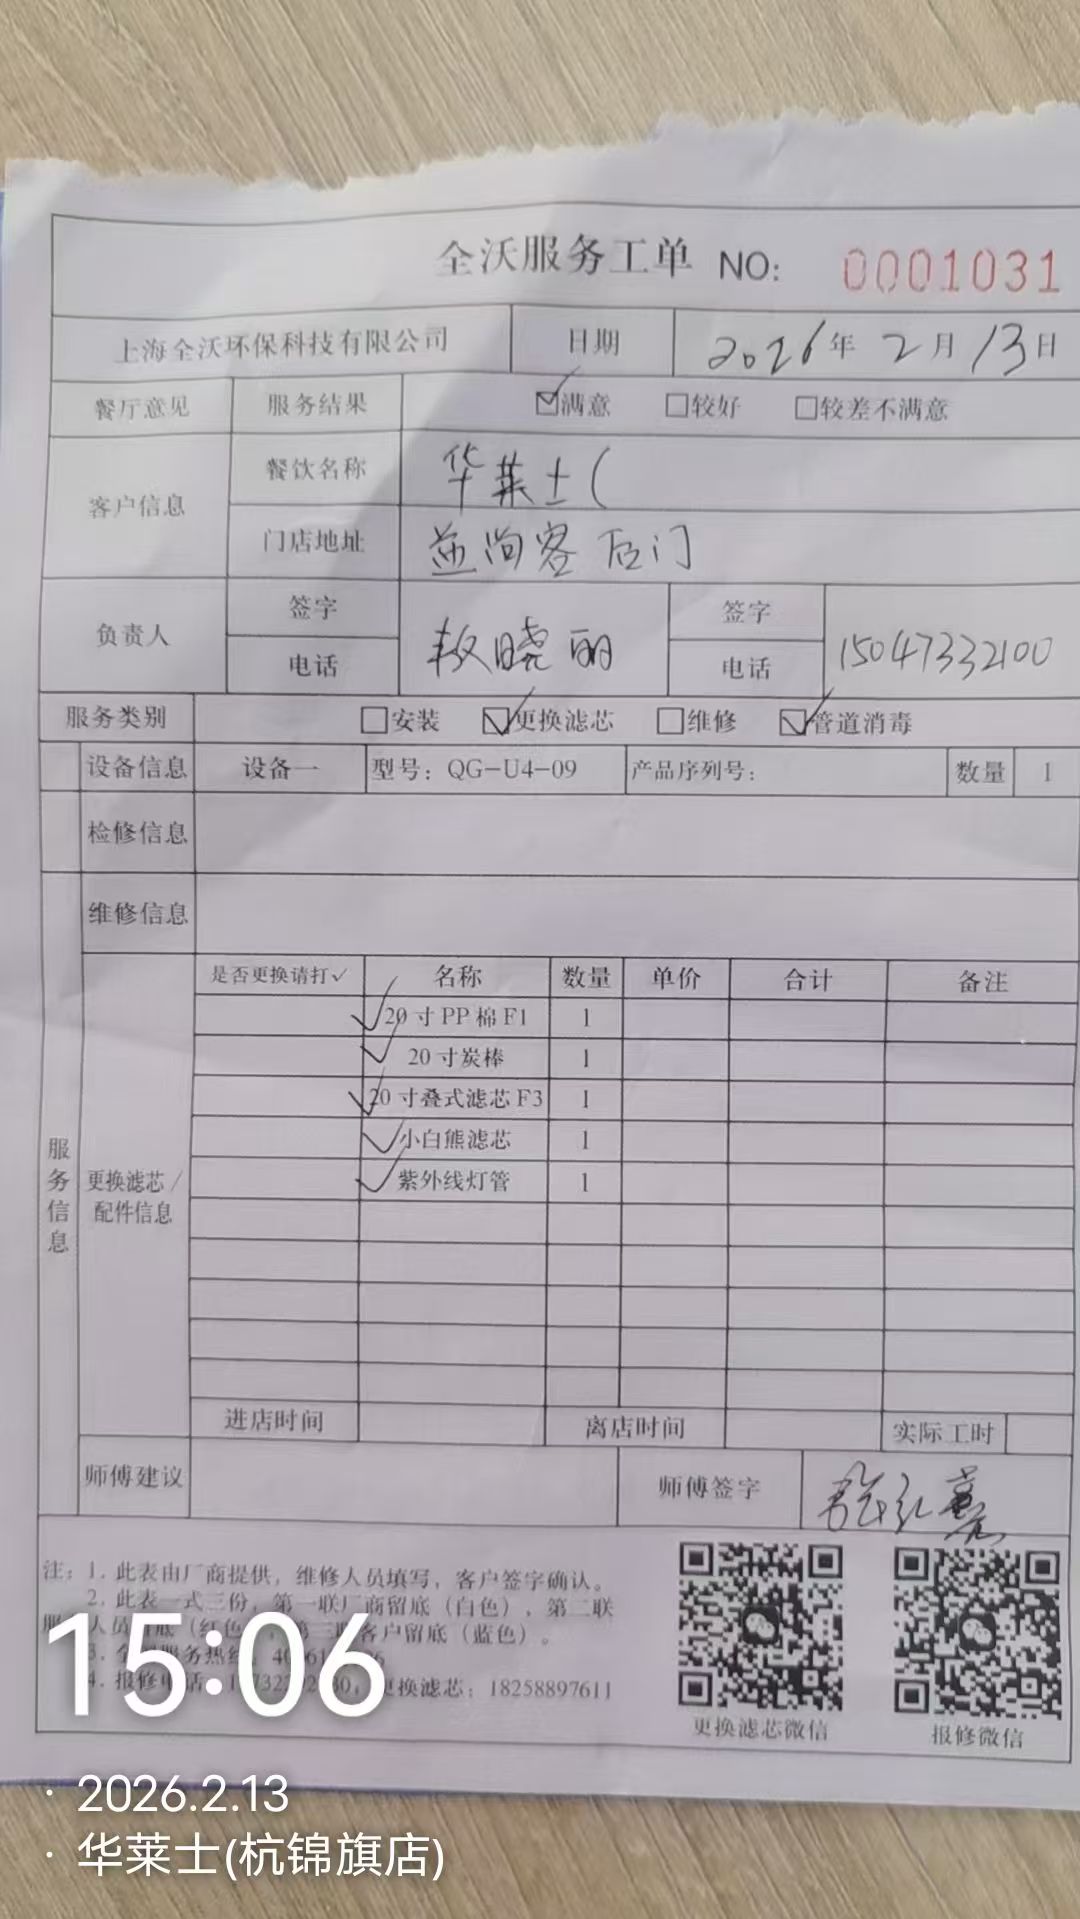 全沃服务工单 NO: 0001031
上海全沃环保科技有限公司 日期 2026年2月13日
餐厅意见 服务结果 ☑满意 □较好 □较差不满意
客户信息 餐饮名称 华莱士(
门店地址 尚客后门
负责人 签字 电话 敖晓丽 签字 电话 15047332100
服务类别 □安装 ☑更换滤芯 □维修 ☑管道消毒
设备信息 设备一 型号：QG-U4-09 产品序列号： 数量 1
检修信息
维修信息
是否更换请打✓ 名称 数量 单价 合计 备注
✓ 20寸PP棉F1 1
✓ 20寸炭棒 1
✓ 20寸叠式滤芯F3 1
✓ 小白熊滤芯 1
✓ 紫外线灯管 1
服务信息
更换滤芯/
配件信息
进店时间 离店时间 实际工时
师傅建议 师傅签字
注：1. 此表由厂商提供，维修人员填写，客户签字确认。
2. 此表一式三份，第一联厂商留底（白色），第二联
人员留底（红色），第三联客户留底（蓝色）。
3. 服务热线
4. 报修电话 更换滤芯：18258897611
更换滤芯微信 报修微信
15:06
· 2026.2.13
· 华莱士(杭锦旗店)